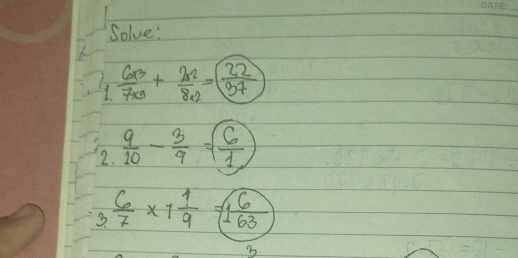 DATE:
Solve:
1. 6x3/7x3 + 2x2/8x2 = 22/37
2. 9/10 - 3/9 = 6/1
3. 6/7 x 1 1/9 = 1 6/63